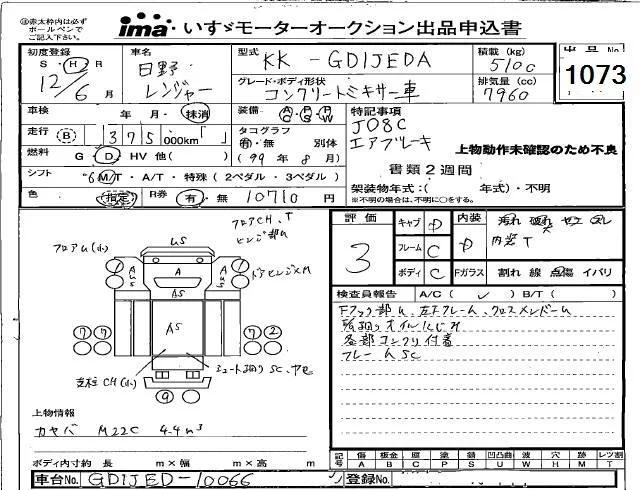 ※赤太枠内は必ずボールペンでご記入下さい。
ima・いすゞモーターオークション出品申込書
初度登録 S・H・R 12/6月
車名 日野 レンジャー
型式 KK-GD1JEDA
積載(kg) 5100
出品No. 1073
グレード・ボディ形状 コンクリートミキサー車
排気量(cc) 7960
車検 年・月・抹消
装備 AC PS PW
特記事項
走行 B 375 000km「 」
タコグラフ 有・無 別体
J08C
エアブレーキ
上物動作未確認のため不良
燃料 G D HV 他( )
(99年8月)
書類2週間
シフト 6 M/T・A/T・特殊(2ペダル・3ペダル)
架装物年式:( 年式)・不明
※不明の場合は、不明に○をする。
色 指定 R券 有・無 10710円
フロアCH、T
ヒンジ部U
US
フロアU(小)
A
AUS
AS
ドアヒンジXM
⑦⑦ ⑦②
支柱CH(小)
シュート廻りSC、
⑨
評価 3
キャブ D
フレーム C
ボディ C
内装 D
汚れ 破れ ヤニ スレ
内装T
Fガラス 割れ 線 点傷 イバリ
検査員報告 A/C( ✓ ) B/T( )
Fフック部U、左Fフレーム、クロスメンバーU
所廻りオイルにじみ
各部コンクリ付着
フレームSC
上物情報
カヤバ M22C 4.4m³
ボディ内寸約 長 m×幅 m×高 m
記号 傷 板金 凹 塗 錆 凹凸曲 波 穴 跡 レツ割
A B C P S U W H M T
車台No. GD1JED-10066
登録No.